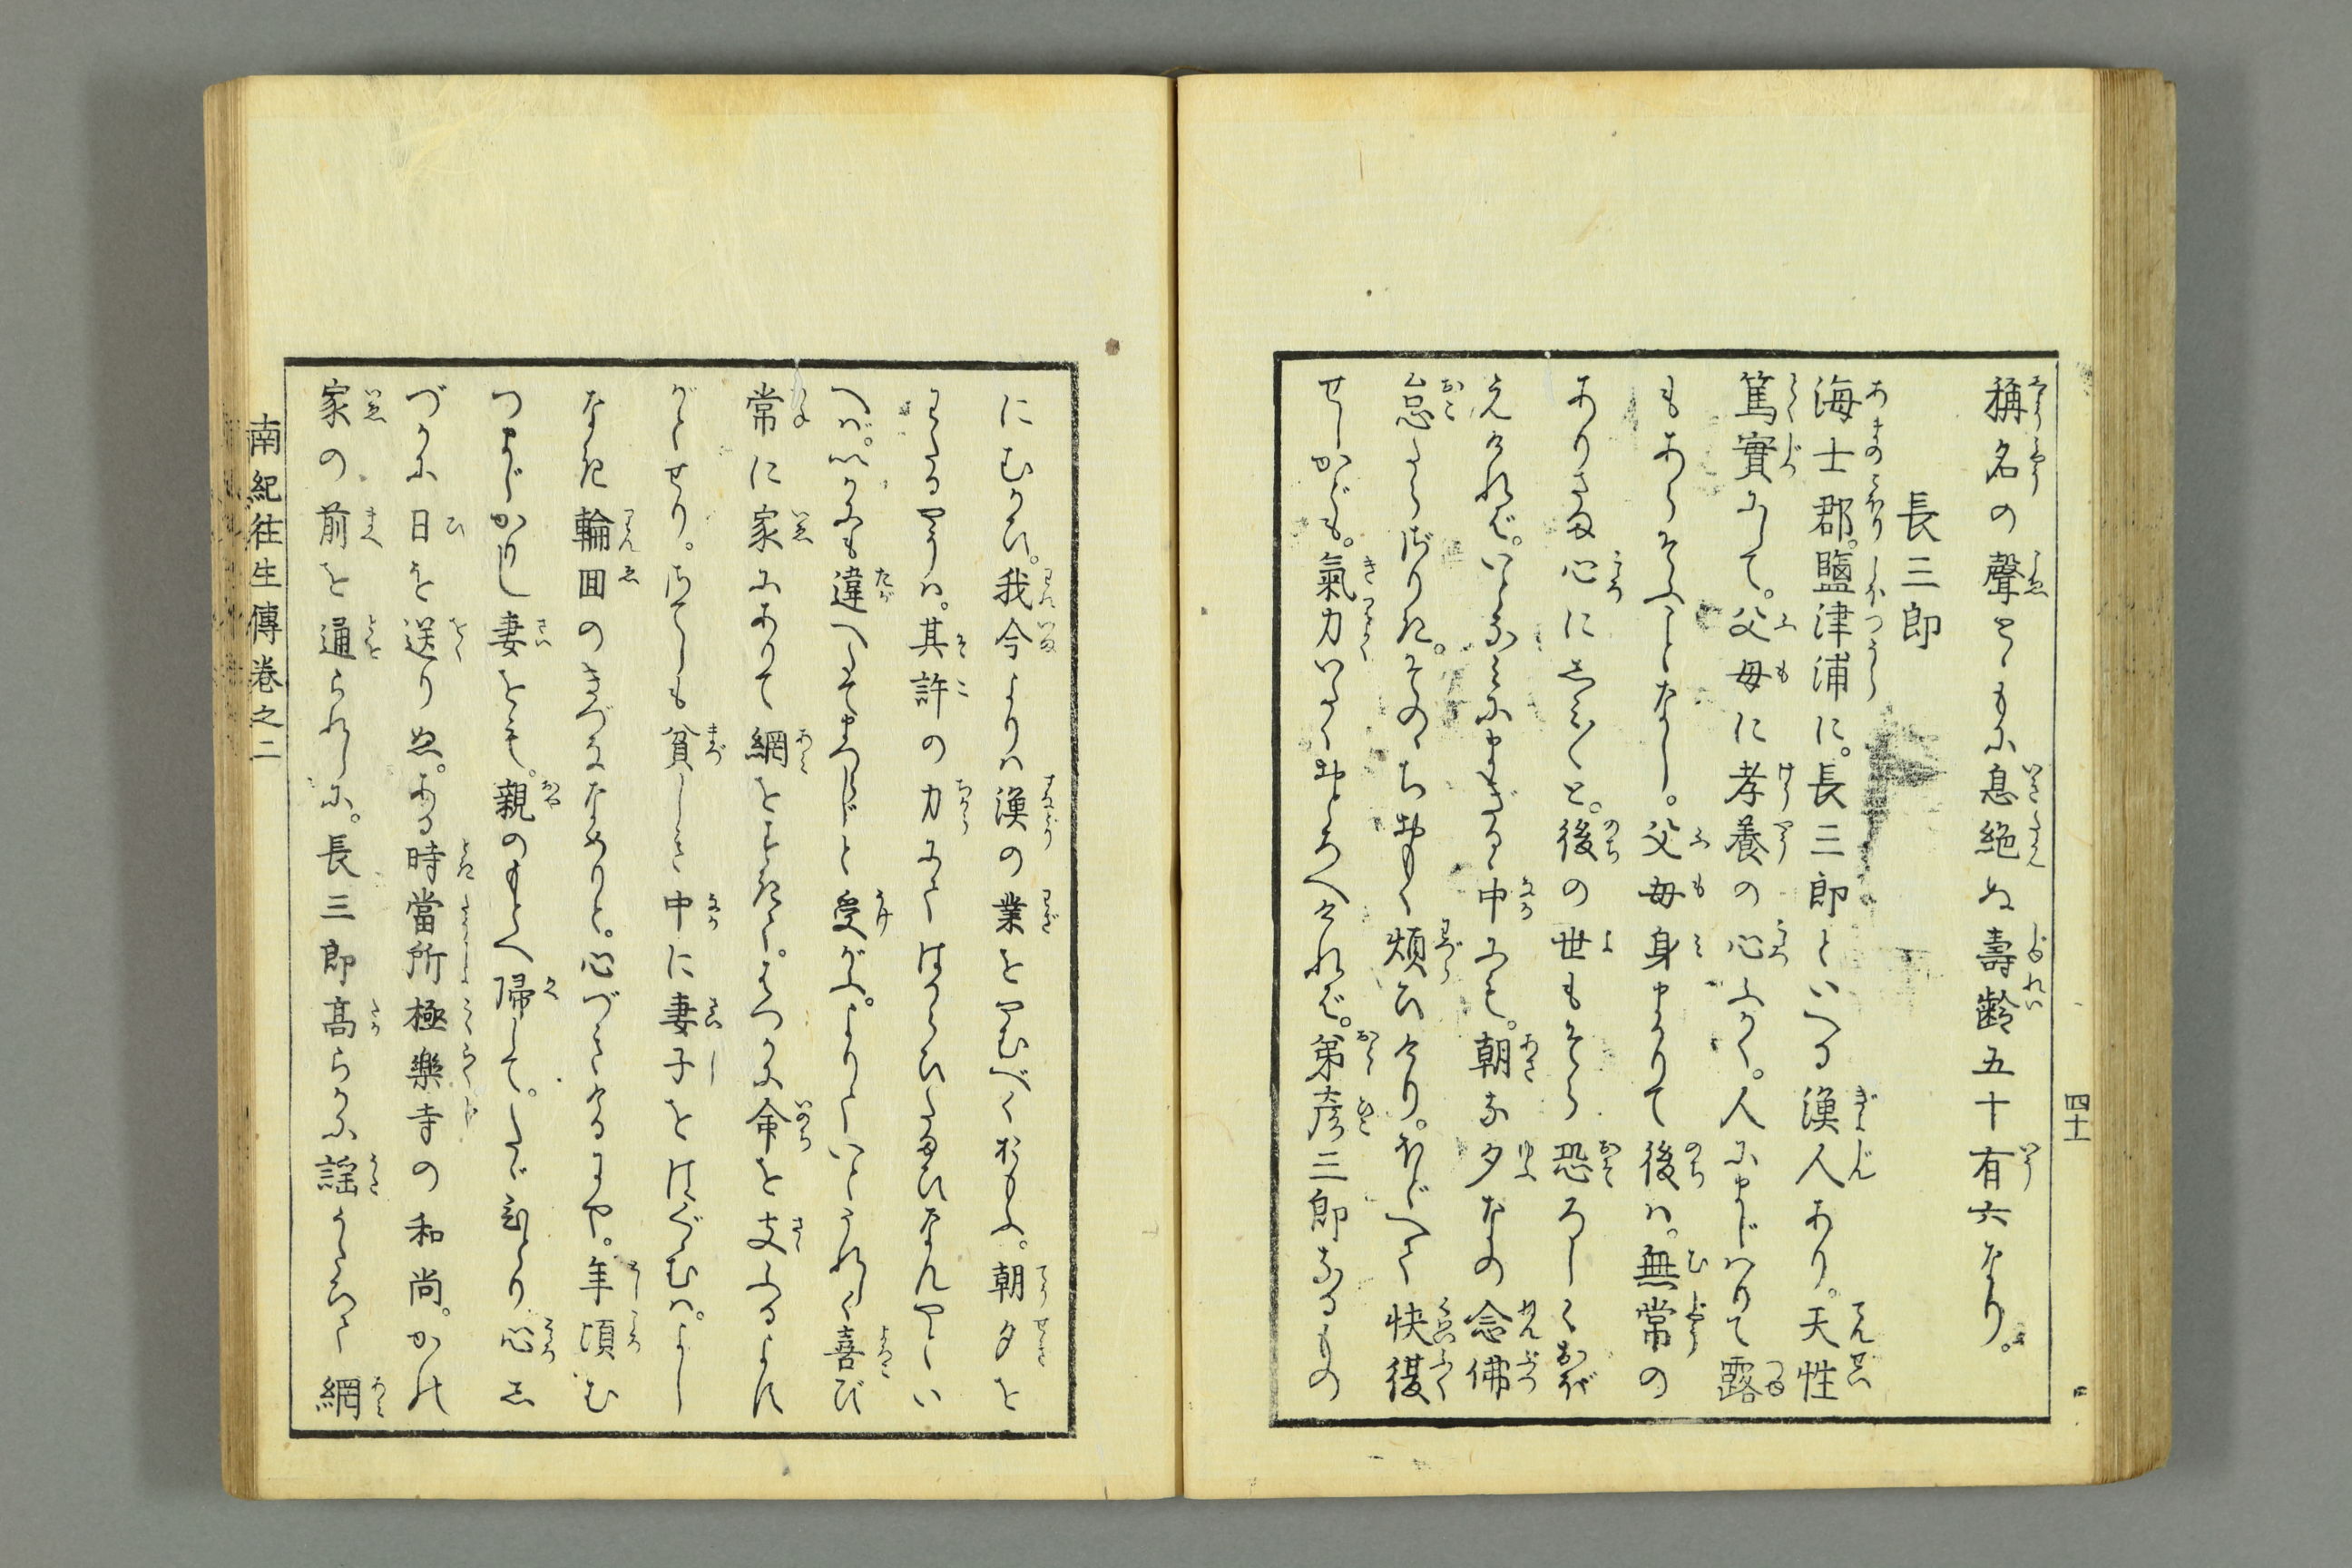 四十一
稱名の聲とゝもに息絶ぬ壽齢五十有六なり。
長三郎
海士郡。鹽津浦に。長三郎といへる漁人あり。天性
篤實にして。父母に孝養の心ふかく。人にまじはりて露
もあらそふことなし。父母身まかりて後は。無常の
ありさま心にしみ〴〵と。後の世もそら恐ろしくおぼ
えければ。いとなみにまぎるゝ中にも。朝な夕なの念佛
怠らざりき。そのゝちおもく煩ひけり。ほどへて快復
せしかども。氣力いたくおとろへければ。弟彦三郎なるもの
にむかひ。我今よりは漁の業をやむべくおもふ。朝夕を
わたるやうは。其許の力にてはからひたまひなんやとい
へば。いかにも違へまをすまじと受がふ。よりていとうれしく喜び
常に家にありて網をすきて。わづかに命を支ふるよす
がとせり。さてしも貧しき中に妻子をはぐゝむは。よし
なき輪囬のきづななめりと。心づきけるにや。年頃む
つまじかりし妻をも。親のもとへ帰して。たゞひとり心し
づかに日を送りぬ。ある時當所極樂寺の和尚。かれ
家の前を通られしに。長三郎高らかに謡うたひて網
南紀往生傳巻之二